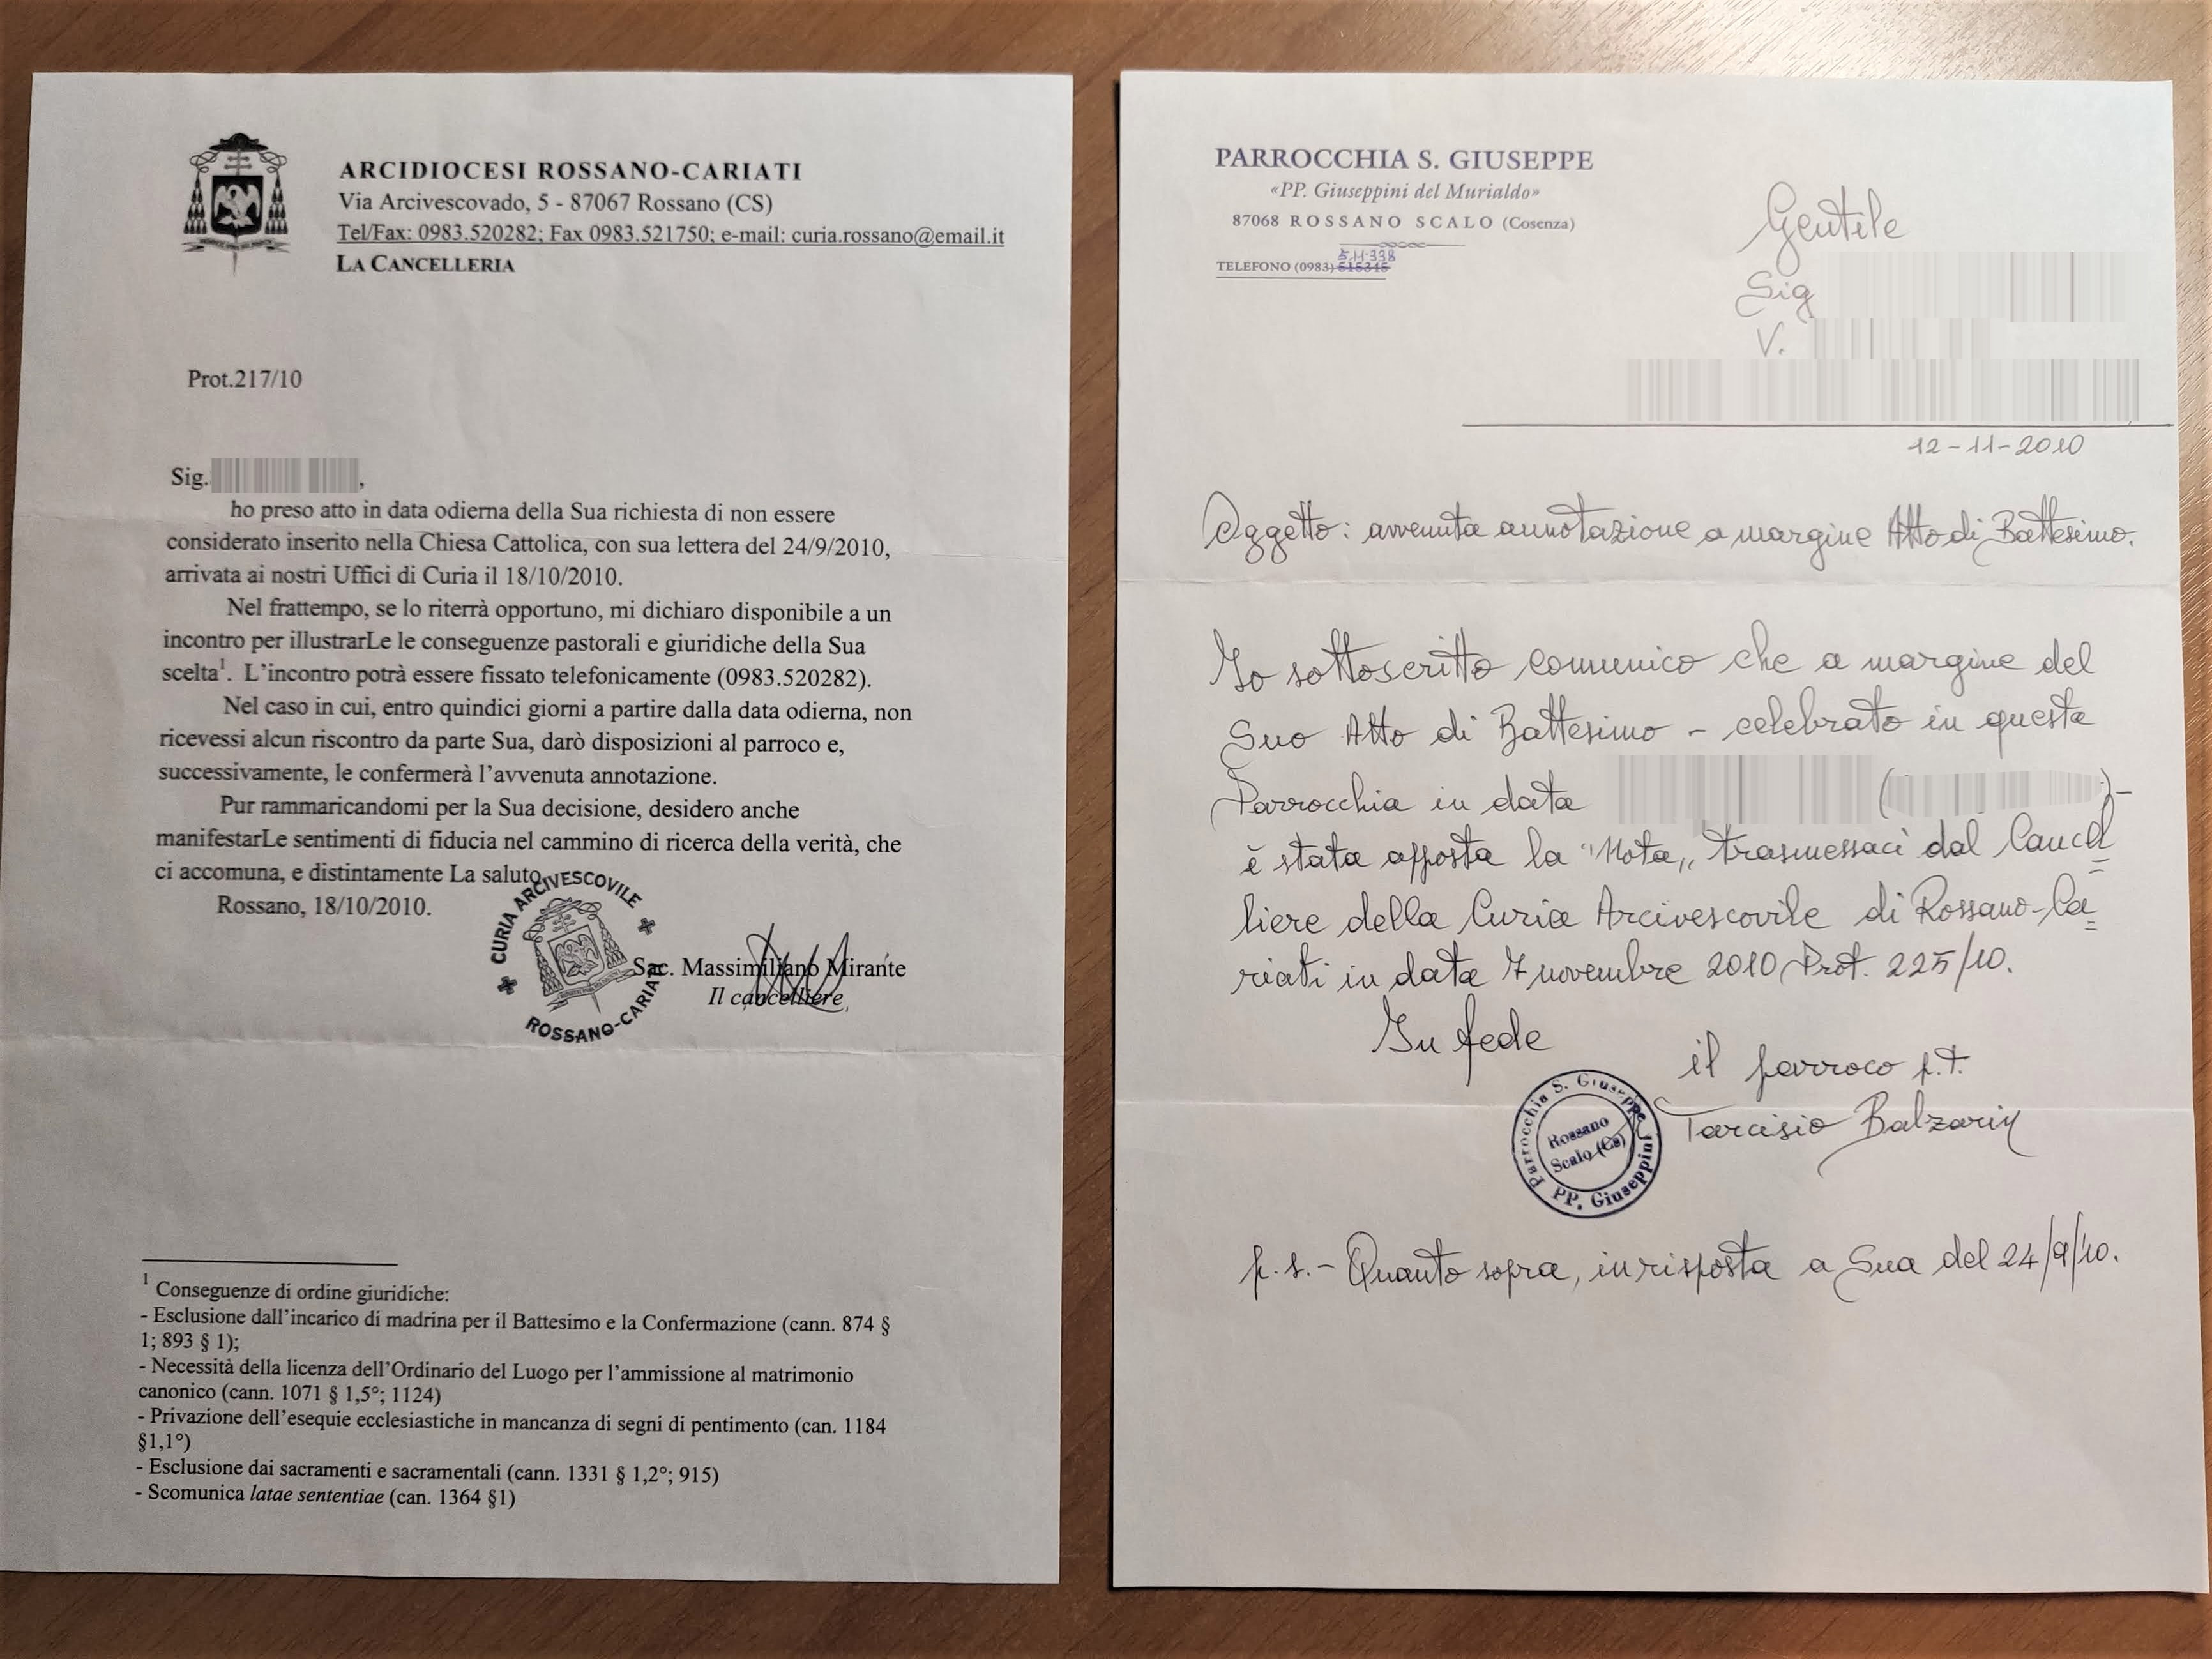 ARCIDIOCESI ROSSANO-CARIATI
Via Arcivescovado, 5 - 87067 Rossano (CS)
Tel/Fax: 0983.520282; Fax 0983.521750; e-mail: curia.rossano@email.it
LA CANCELLERIA
Prot.217/10
Sig. ,
ho preso atto in data odierna della Sua richiesta di non essere
considerato inserito nella Chiesa Cattolica, con sua lettera del 24/9/2010,
arrivata ai nostri Uffici di Curia il 18/10/2010.
Nel frattempo, se lo riterrà opportuno, mi dichiaro disponibile a un
incontro per illustrarLe le conseguenze pastorali e giuridiche della Sua
scelta¹. L'incontro potrà essere fissato telefonicamente (0983.520282).
Nel caso in cui, entro quindici giorni a partire dalla data odierna, non
ricevessi alcun riscontro da parte Sua, darò disposizioni al parroco e,
successivamente, le confermerà l'avvenuta annotazione.
Pur rammaricandomi per la Sua decisione, desidero anche
manifestarLe sentimenti di fiducia nel cammino di ricerca della verità, che
ci accomuna, e distintamente La saluto.
Rossano, 18/10/2010.
CURIA ARCIVESCOVILE
ROSSANO-CARIATI
Sac. Massimiliano Mirante
Il cancelliere
¹ Conseguenze di ordine giuridiche:
- Esclusione dall'incarico di madrina per il Battesimo e la Confermazione (cann. 874 §
1; 893 § 1);
- Necessità della licenza dell'Ordinario del Luogo per l'ammissione al matrimonio
canonico (cann. 1071 § 1,5°; 1124)
- Privazione dell'esequie ecclesiastiche in mancanza di segni di pentimento (can. 1184
§1,1°)
- Esclusione dai sacramenti e sacramentali (cann. 1331 § 1,2°; 915)
- Scomunica latae sententiae (can. 1364 §1)
PARROCCHIA S. GIUSEPPE
«PP. Giuseppini del Murialdo»
87068 ROSSANO SCALO (Cosenza)
511.338
TELEFONO (0983) 515345
Gentile
Sig
V.
12-11-2010
Oggetto: avvenuta annotazione a margine Atto di Battesimo.
Io sottoscritto comunico che a margine del
Suo Atto di Battesimo - celebrato in questa
Parrocchia in data ( )-
è stata apposta la "Nota" trasmessaci dal Cancel=
liere della Curia Arcivescovile di Rossano-Ca=
riati in data 7 novembre 2010 Prot. 225/10.
In fede
il parroco p.t.
Tarcisio Balzarin
Parrocchia S. Giuseppe
Rossano
Scalo (Cs)
PP. Giuseppini
p.s.- Quanto sopra, in risposta a Sua del 24/9/'10.